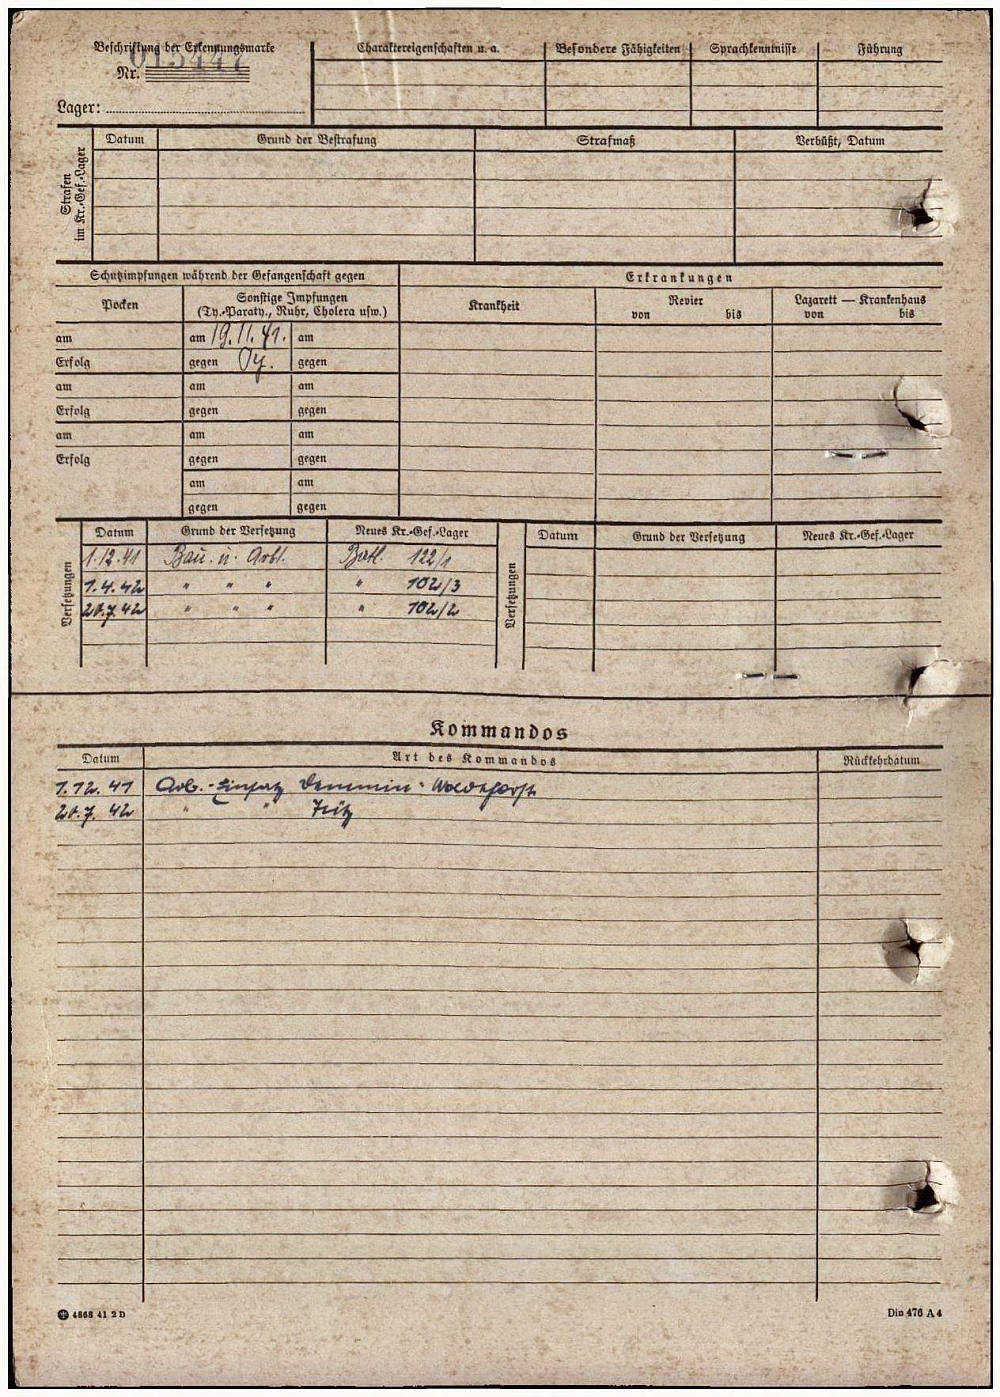 Beschriftung der Erkennungsmarke
Nr. 013447
Lager:
Charaktereigenschaften u. a.
Besondere Fähigkeiten
Sprachkenntnisse
Führung
Strafen im Kr.-Gef.-Lager
Datum
Grund der Bestrafung
Strafmaß
Verbüßt, Datum
Schutzimpfungen während der Gefangenschaft gegen
Erkrankungen
Pocken
Sonstige Impfungen
(Ty.-Paraty., Ruhr, Cholera usw.)
Krankheit
Revier
von bis
Lazarett — Krankenhaus
von bis
am am 19.11.41. am
Erfolg gegen Ty. gegen
am am am
Erfolg gegen gegen
am am am
Erfolg gegen gegen
am am
gegen gegen
Versetzungen
Datum Grund der Versetzung Neues Kr.-Gef.-Lager
1.12.41 Bau. u. Arbt. Batl. 122/1
1.4.42 " " " " 102/3
20.7.42 " " " " 102/2
Versetzungen
Datum Grund der Versetzung Neues Kr.-Gef.-Lager
Kommandos
Datum Art des Kommandos Rückkehrdatum
1.12.41 Arb.-Einsatz Demmin-
20.7.42 " "
4868 41 2 D
Din 476 A 4